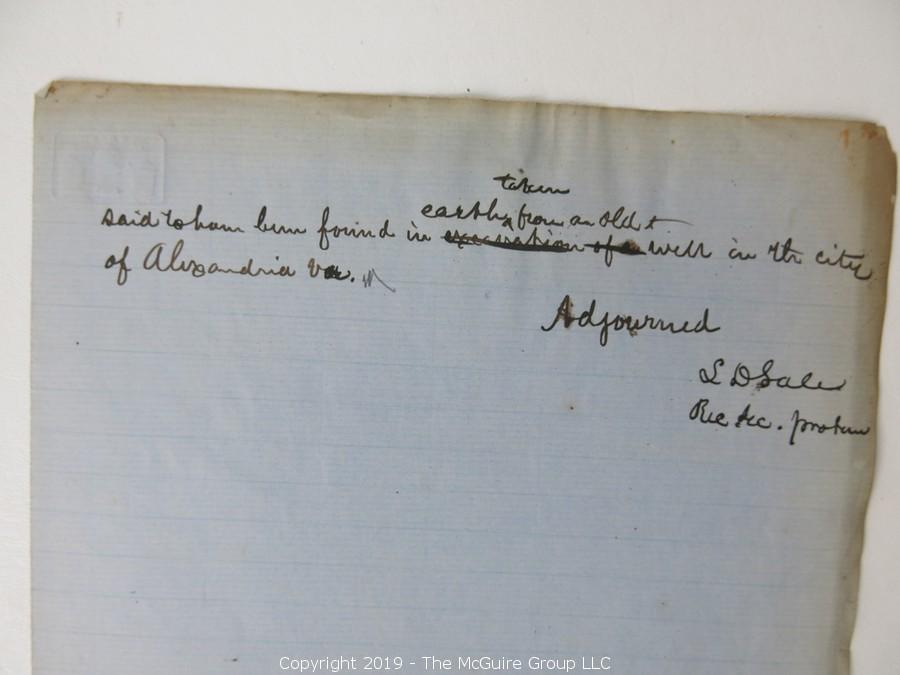 taken
earth, from an old
said to have been found in excavation of a well in the city
of Alexandria Va.
Adjourned
L D Gale
Rec Sec. protem
Copyright 2019 - The McGuire Group LLC